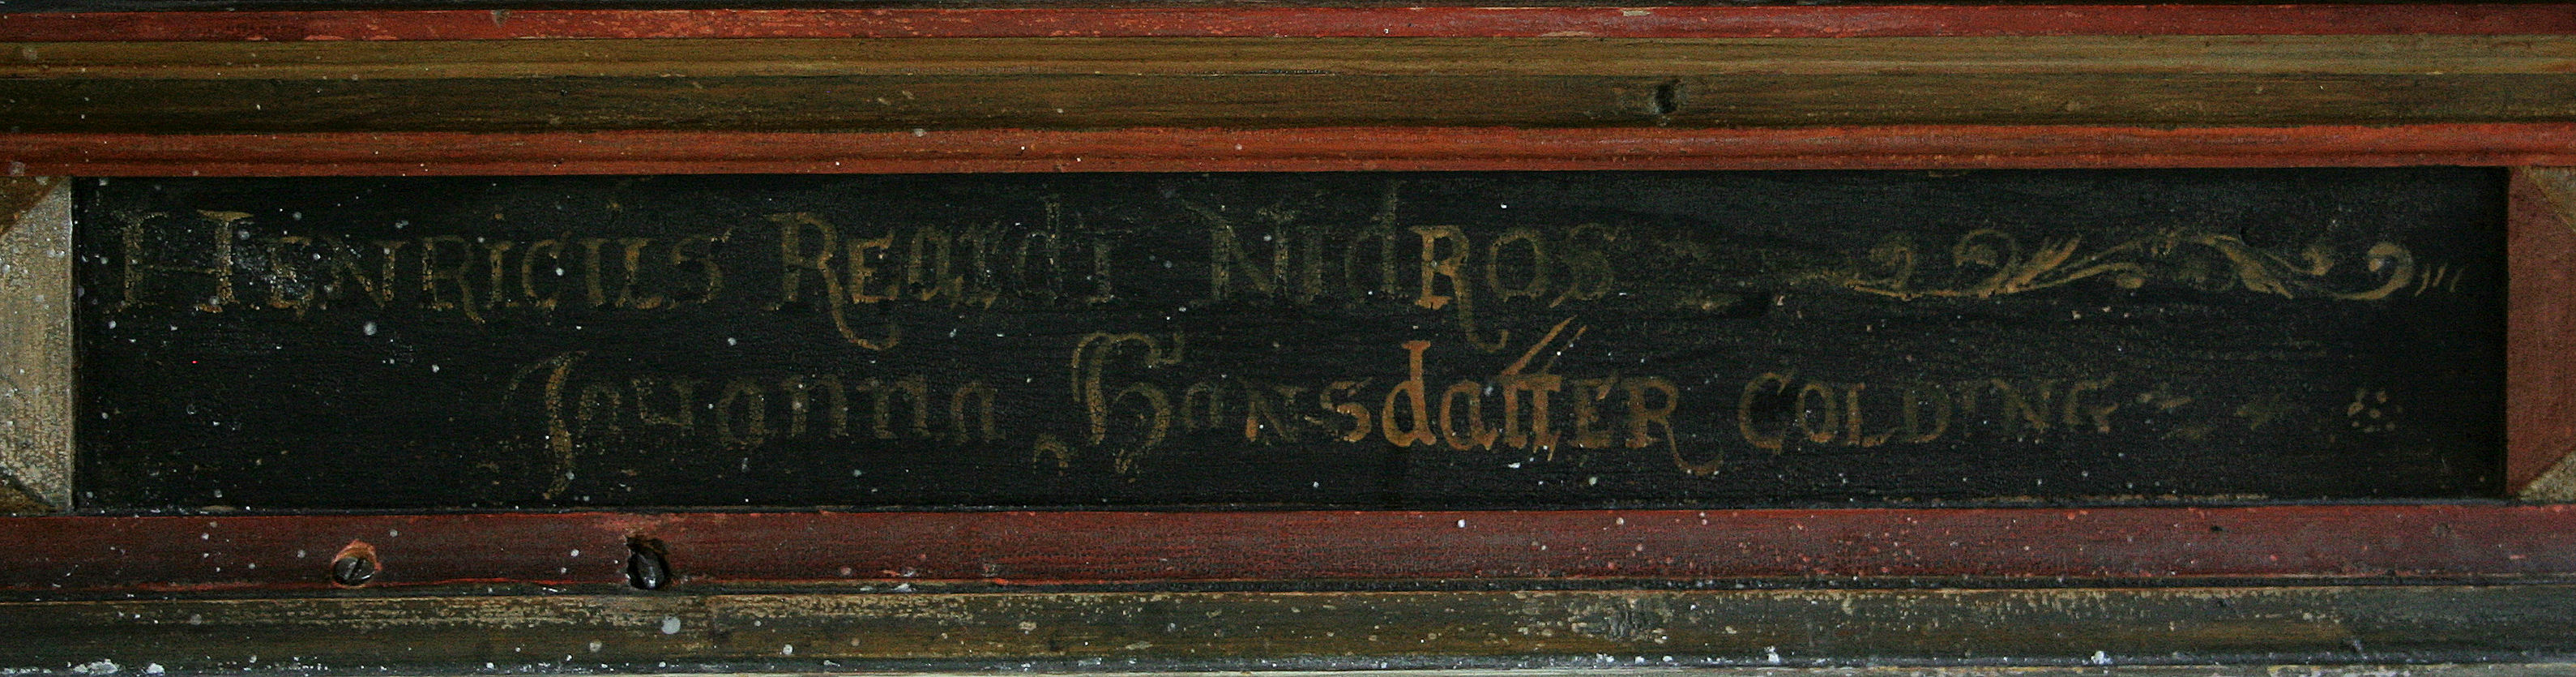 HENRICUS REardi NidROS
Johanna HansdattER COLDING